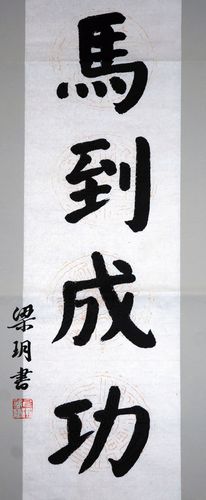 馬到成功
梁玥書